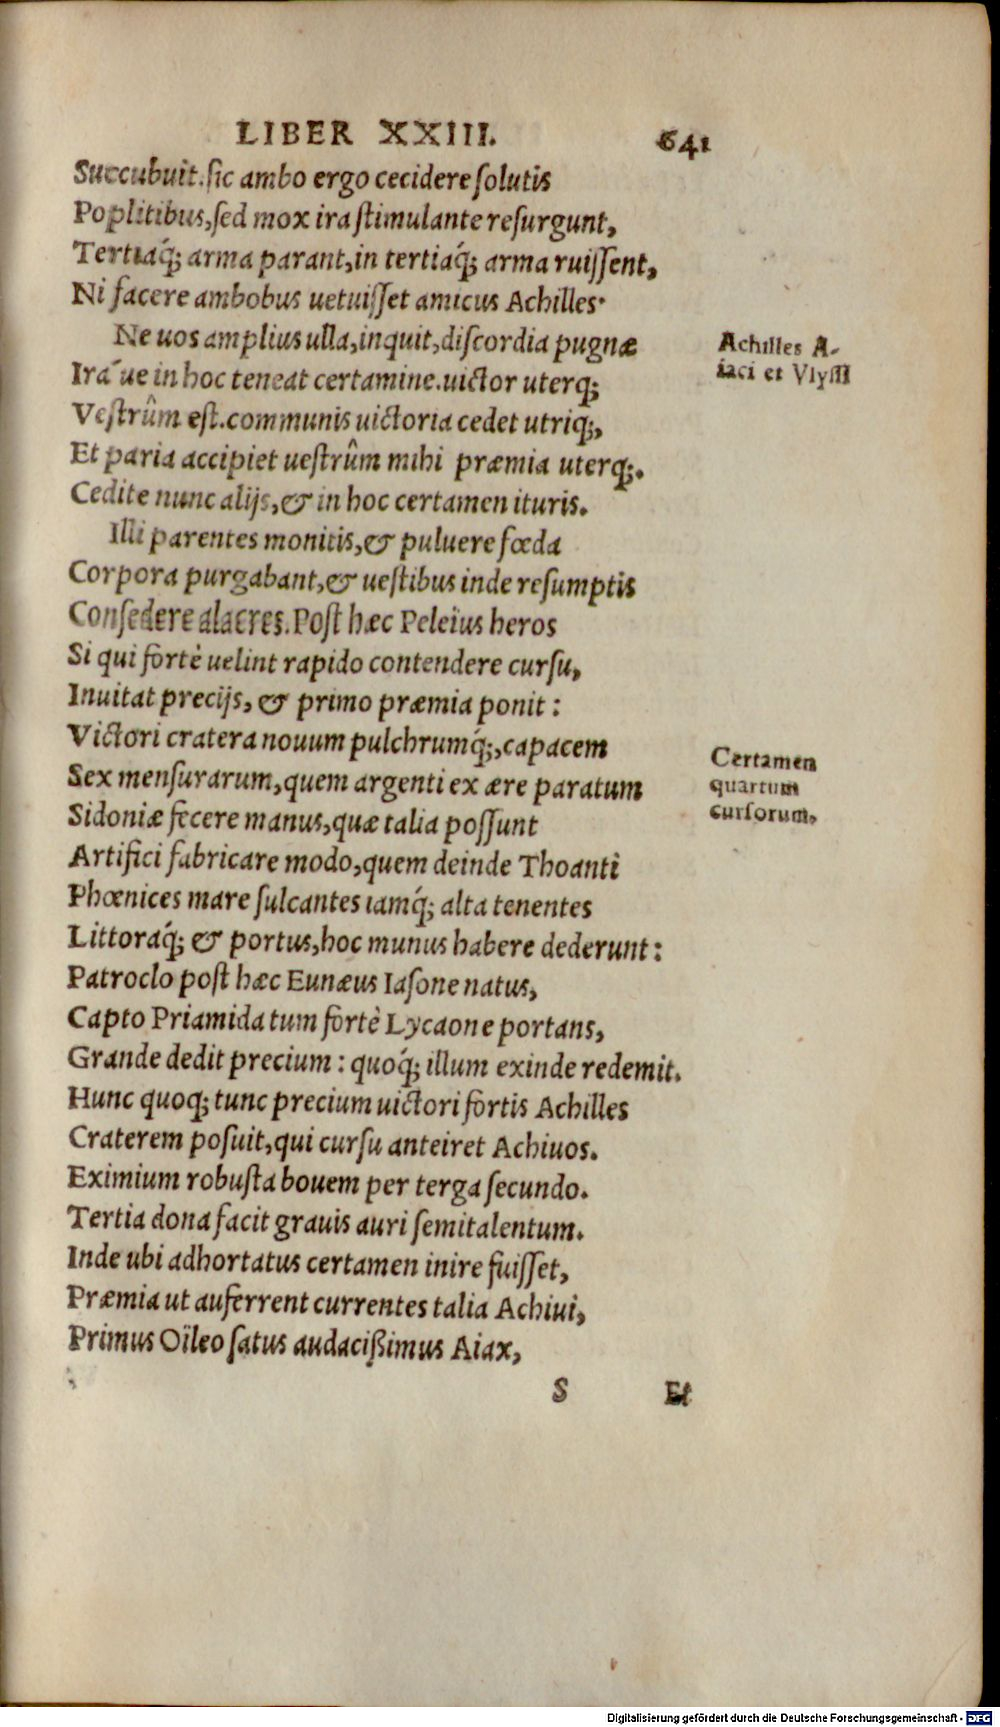 LIBER XXIII. 641
Succubuit. sic ambo ergo cecidere solutis
Poplitibus, sed mox ira stimulante resurgunt,
Tertiaq́; arma parant, in tertiaq́; arma ruissent,
Ni facere ambobus uetuisset amicus Achilles.
Ne uos amplius ulla, inquit, discordia pugnæ
Achilles A-
iaci et Vlyssi
Irá ue in hoc teneat certamine. uictor uterq;
Vestrûm est. communis uictoria cedet utriq;,
Et paria accipiet uestrûm mihi præmia uterq;.
Cedite nunc alijs, & in hoc certamen ituris.
Illi parentes monitis, & puluere fœda
Corpora purgabant, & uestibus inde resumptis
Consedere alacres. Post hæc Peleïus heros
Si qui fortè uelint rapido contendere cursu,
Inuitat precijs, & primo præmia ponit:
Victori cratera nouum pulchrumq́;, capacem
Certamen
quartum
cursorum.
Sex mensurarum, quem argenti ex ære paratum
Sidoniæ fecere manus, quæ talia possunt
Artifici fabricare modo, quem deinde Thoanti
Phœnices mare sulcantes iamq́; alta tenentes
Littoraq́; & portus, hoc munus habere dederunt:
Patroclo post hæc Eunæus Iasone natus,
Capto Priamida tum fortè Lycaone portans,
Grande dedit precium: quoq́; illum exinde redemit.
Hunc quoq; tunc precium uictori fortis Achilles
Craterem posuit, qui cursu anteiret Achiuos.
Eximium robusta bouem per terga secundo.
Tertia dona facit grauis auri semitalentum.
Inde ubi adhortatus certamen inire fuisset,
Præmia ut auferrent currentes talia Achiui,
Primus Oïleo satus audacißimus Aiax,
S Et
Digitalisierung gefördert durch die Deutsche Forschungsgemeinschaft - DFG